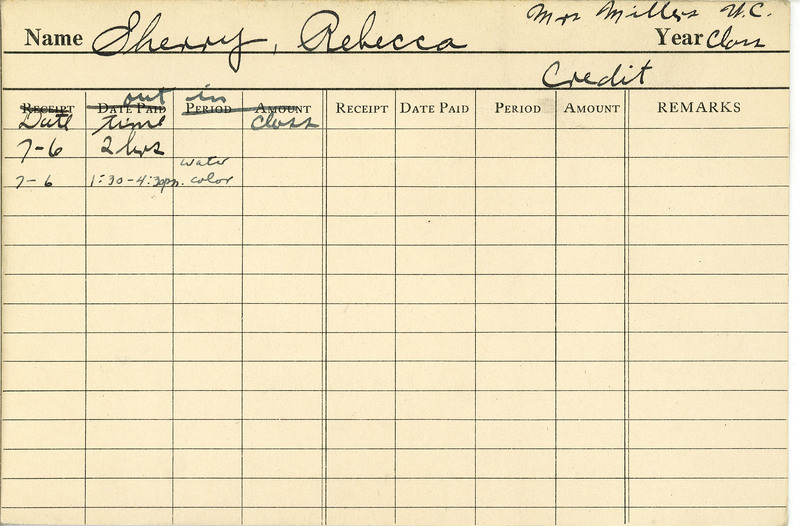 Mrs Millers W.C.
Name Sherry, Rebecca Year Class
Credit
out in
RECEIPT DATE PAID PERIOD AMOUNT RECEIPT DATE PAID PERIOD AMOUNT REMARKS
Date time class
7-6 2 hrs
water
7-6 1:30-4:30pm. color